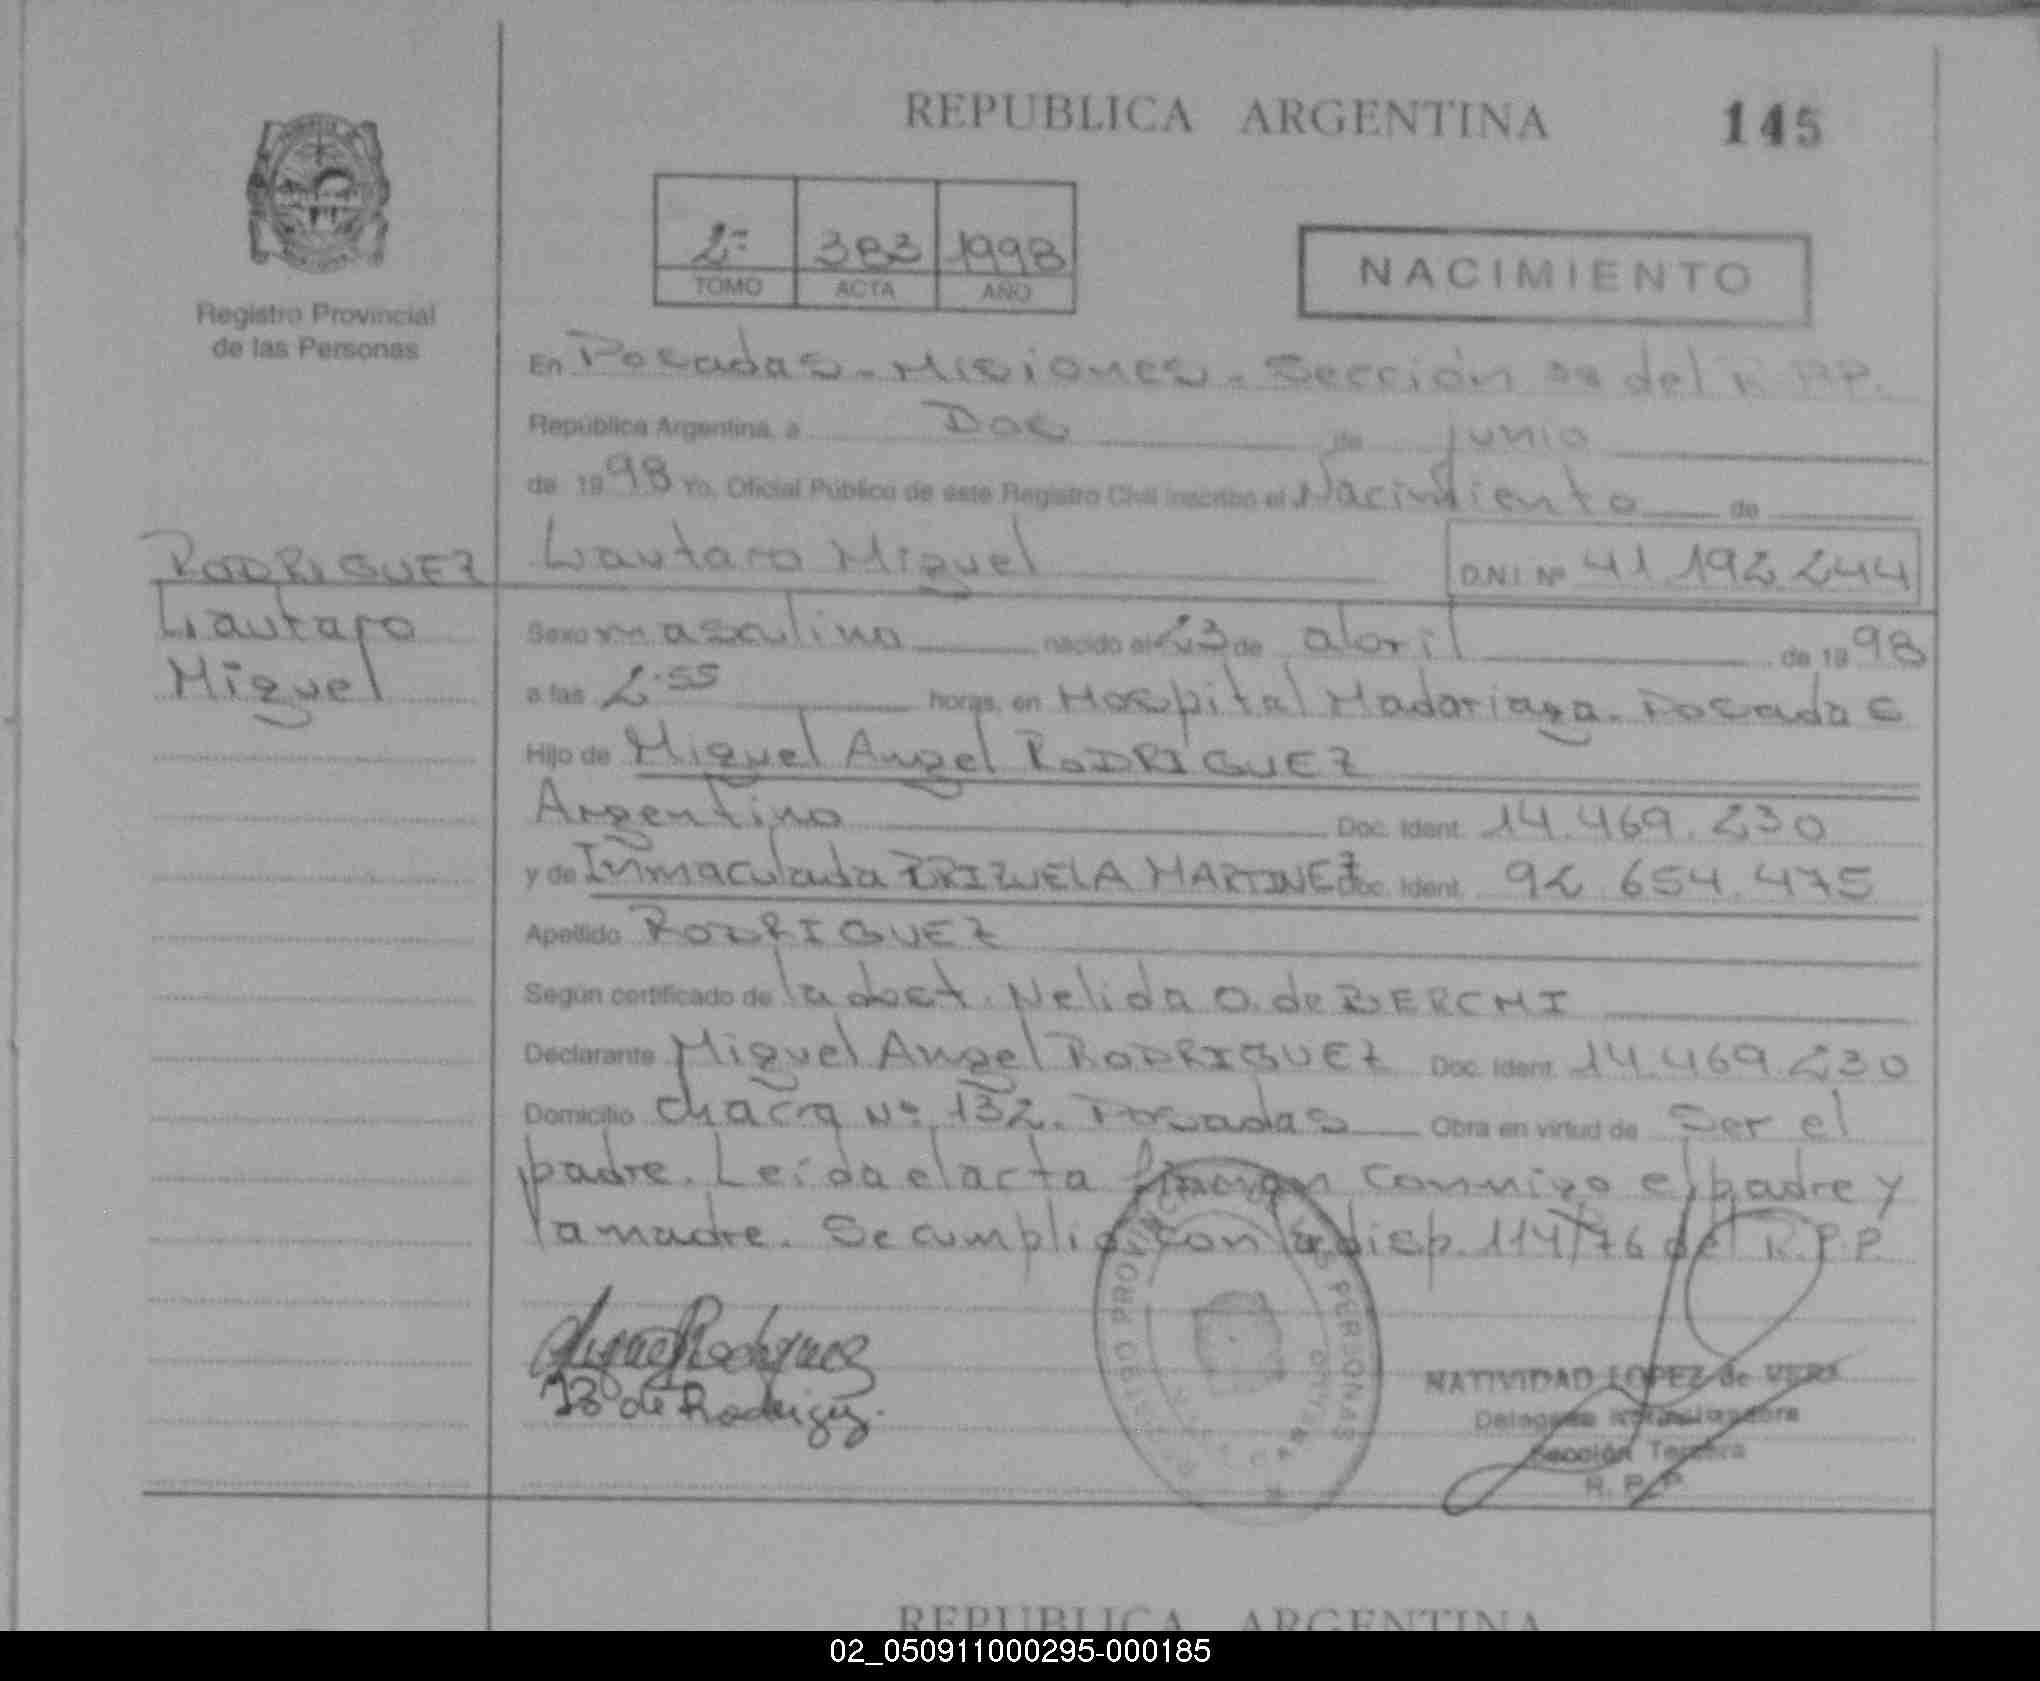 REPUBLICA ARGENTINA 145
2º 383 1998
TOMO ACTA AÑO
NACIMIENTO
Registro Provincial
de las Personas
En Posadas - Misiones - Sección 3ª del R.P.P.
República Argentina, a Dos de junio
de 1998 Yo, Oficial Público de este Registro Civil inscribo el Nacimiento de
RODRIGUEZ
Lautaro
Miguel
Lautaro Miguel D.N.I. Nº 41 192 244
Sexo masculino nacido el 23 de abril de 1998
a las 2.55 horas, en Hospital Madariaga. Posadas
Hijo de Miguel Angel RODRIGUEZ
Argentino Doc. Ident. 14.469.230
y de Inmaculada BRIZUELA MARTINEZ Doc. Ident. 92 654.475
Apellido RODRIGUEZ
Según certificado de la obst. Nelida O. de BERCHI
Declarante Miguel Angel RODRIGUEZ Doc. Ident. 14.469.230
Domicilio Chacra Nº 132. Posadas Obra en virtud de ser el
padre. Leída el acta firman conmigo el padre y
la madre. Se cumplió con la disp. 114/76 del R.P.P
REGISTRO PROVINCIAL DE LAS PERSONAS
Rodriguez
de Rodriguez.
NATIVIDAD LOPEZ de VERA
Delegada
Sección Tercera
R. P. P.
REPUBLICA ARGENTINA
02_050911000295-000185